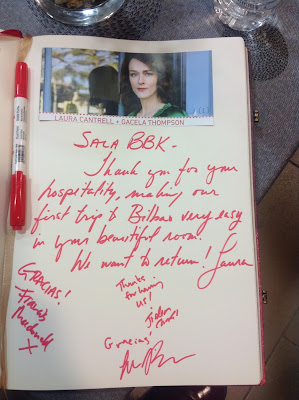 LAURA CANTRELL + GACELA THOMPSON
SALA BBK-
Thank you for your
hospitality, making our
first trip to Bilbao very easy
in your beautiful room.
We want to return! Laura
GRACIAS!
X
Thanks
for having
us!
Gracias!